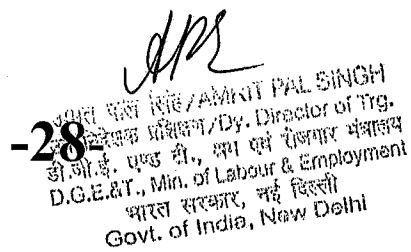 APS
अमृत पाल सिंह/AMRIT PAL SINGH
-28-
निदेशक प्रशिक्षण/Dy. Director of Trg.
डी.जी.ई. एण्ड टी., श्रम एवं रोजगार मंत्रालय
D.G.E.&T., Min. of Labour & Employment
भारत सरकार, नई दिल्ली
Govt. of India, New Delhi